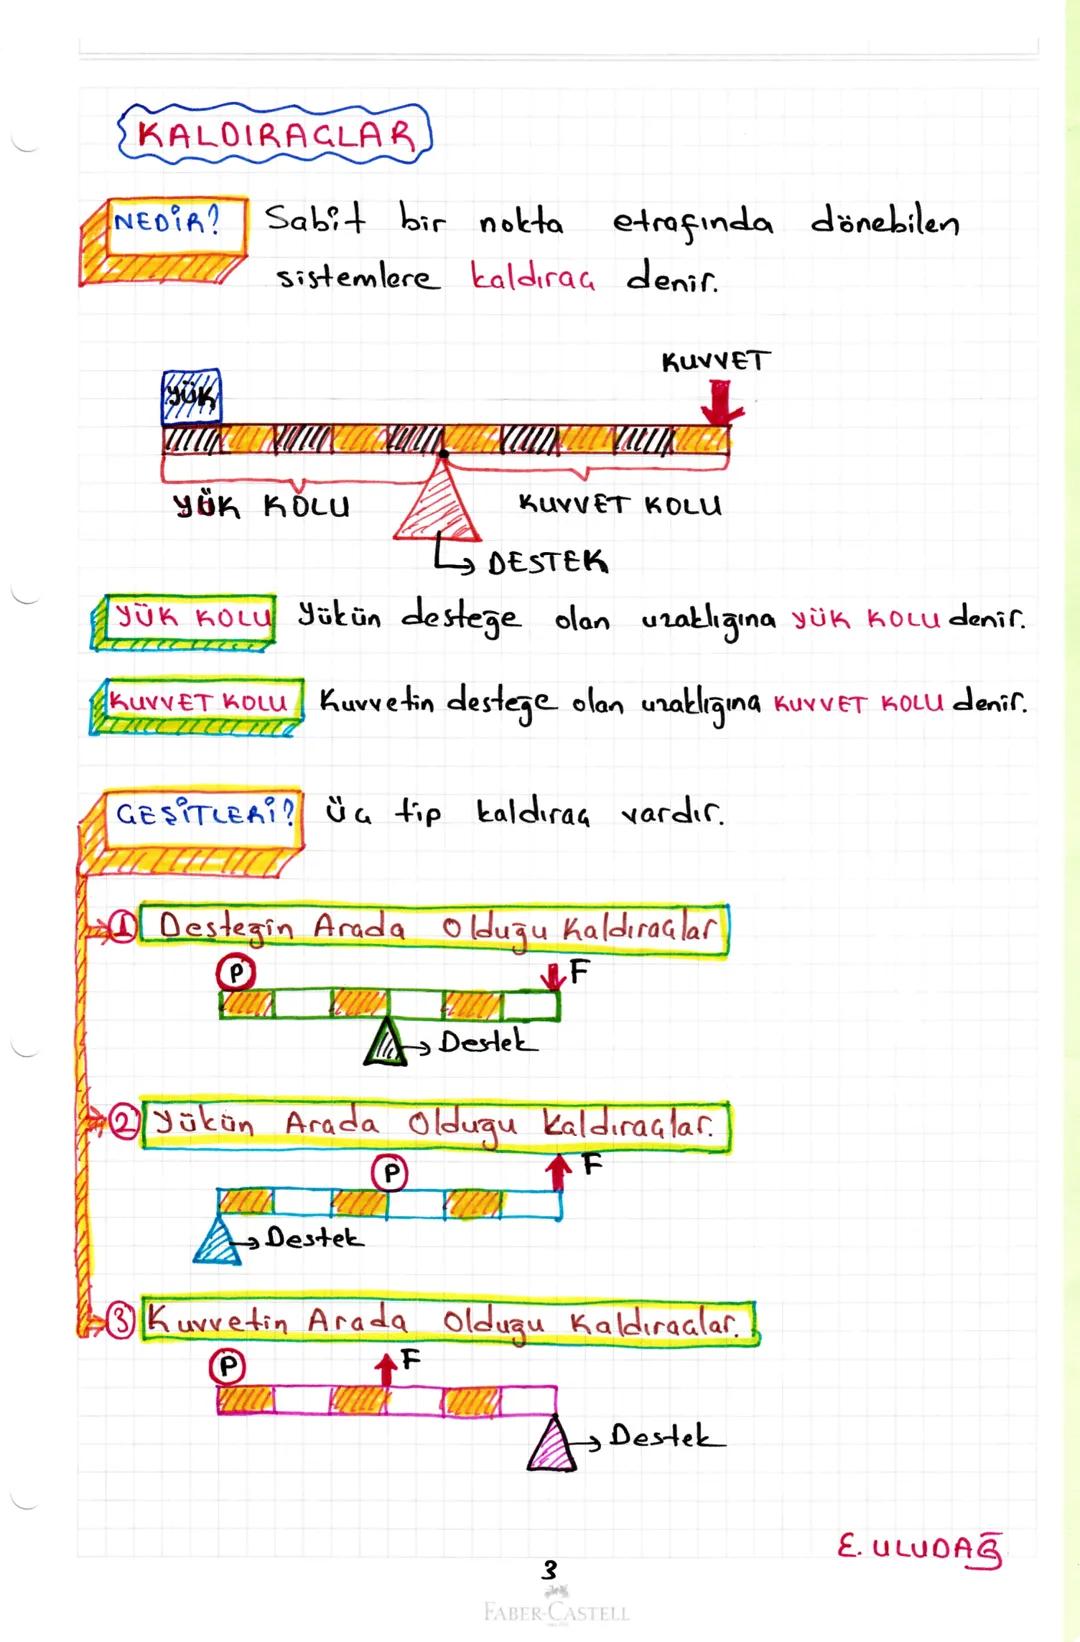 KALDIRAÇLAR
NEDİR? Sabit bir nokta etrafında dönebilen
sistemlere kaldıraç denir.
KUVVET
YÜK
YÜK KOLU
KUVVET KOLU
DESTEK
YÜK KOLU Yükün desteğe olan uzaklığına YÜK KOLU denir.
KUVVET KOLU Kuvvetin desteğe olan uzaklığına KUVVET KOLU denir.
ÇEŞİTLERİ? Üç tip kaldıraç vardır.
1 Desteğin Arada Olduğu Kaldıraçlar
P
F
Destek
2 Yükün Arada Olduğu Kaldıraçlar.
P
F
Destek
3 Kuvvetin Arada Olduğu Kaldıraçlar.
P
F
Destek
E. ULUDAĞ
3
FABER-CASTELL